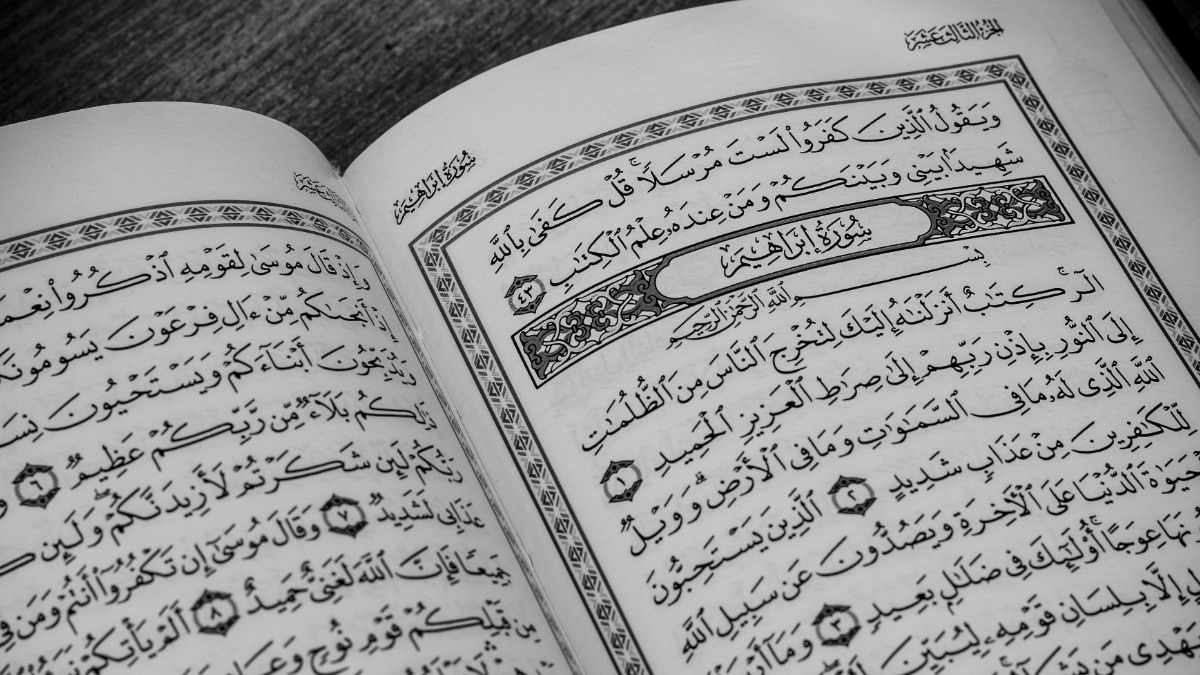 الجزء الثالث عشر
سُورَةُ إِبْرَاهِيمَ
وَيَقُولُ ٱلَّذِينَ كَفَرُواْ لَسْتَ مُرْسَلًاۚ قُلْ كَفَىٰ بِٱللَّهِ
شَهِيدَۢا بَيْنِي وَبَيْنَكُمْ وَمَنْ عِندَهُۥ عِلْمُ ٱلْكِتَٰبِ ٤٣
سُورَةُ إِبْرَاهِيمَ
بِسْمِ ٱللَّهِ ٱلرَّحْمَٰنِ ٱلرَّحِيمِ
الٓرۚ كِتَٰبٌ أَنزَلْنَٰهُ إِلَيْكَ لِتُخْرِجَ ٱلنَّاسَ مِنَ ٱلظُّلُمَٰتِ
إِلَى ٱلنُّورِ بِإِذْنِ رَبِّهِمْ إِلَىٰ صِرَٰطِ ٱلْعَزِيزِ ٱلْحَمِيدِ ١
ٱللَّهِ ٱلَّذِي لَهُۥ مَا فِي ٱلسَّمَٰوَٰتِ وَمَا فِي ٱلْأَرْضِۗ وَوَيْلٌ
لِّلْكَٰفِرِينَ مِنْ عَذَابٍ شَدِيدٍ ٢ ٱلَّذِينَ يَسْتَحِبُّونَ
ٱلْحَيَوٰةَ ٱلدُّنْيَا عَلَى ٱلْأٓخِرَةِ وَيَصُدُّونَ عَن سَبِيلِ ٱللَّهِ
عِوَجًاۚ أُوْلَٰٓئِكَ فِي ضَلَٰلٍۭ بَعِيدٍ ٣ وَمَآ
إِلَّا بِلِسَانِ قَوْمِهِۦ لِيُبَيِّنَ
مَن
الجزء الثالث عشر
وَإِذْ قَالَ مُوسَىٰ لِقَوْمِهِ ٱذْكُرُواْ
إِذْ أَنجَىٰكُم مِّنْ ءَالِ فِرْعَوْنَ يَسُومُونَكُمْ
وَيُذَبِّحُونَ أَبْنَآءَكُمْ وَيَسْتَحْيُونَ
ذَٰلِكُم بَلَآءٌ مِّن رَّبِّكُمْ عَظِيمٌ ٦
رَبُّكُمْ لَئِن شَكَرْتُمْ لَأَزِيدَنَّكُمْۖ وَلَئِن
عَذَابِي لَشَدِيدٌ ٧ وَقَالَ مُوسَىٰٓ إِن تَكْفُرُوٓاْ أَنتُمْ وَمَن فِي
جَمِيعًا فَإِنَّ ٱللَّهَ لَغَنِيٌّ حَمِيدٌ ٨ أَلَمْ يَأْتِكُمْ
مِن قَبْلِكُمْ قَوْمِ نُوحٍ وَعَادٍ